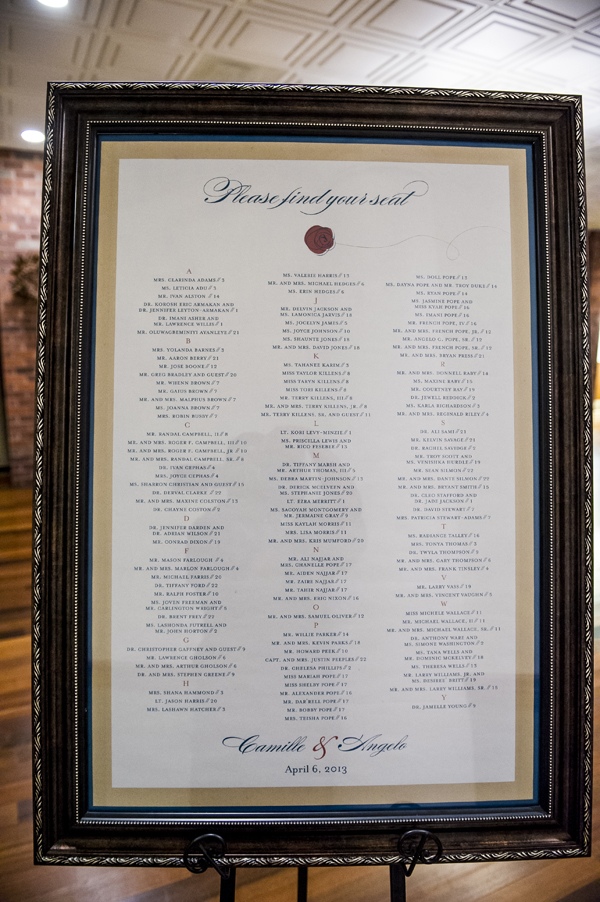 Please find your seat
A
MRS. CLARINDA ADAMS // 3
MS. LETICIA ADU // 3
MR. IVAN ALSTON // 14
DR. KOROSH ERIC ARMAKAN AND
DR. JENNIFER LEYTON-ARMAKAN // 1
DR. IMANI ASHER AND
MR. LAWRENCE WILLIS // 1
MR. OLUWAGBEMINITI AVANLEYE // 21
B
MRS. YOLANDA BARNES // 3
MR. AARON BERRY // 21
MR. JOSE BOONE // 12
MR. GREG BRADLEY AND GUEST // 20
MR. WHENN BROWN // 7
MR. GAIUS BROWN // 7
MR. AND MRS. MALPHUS BROWN // 7
MS. JOANNA BROWN // 7
MRS. ROBIN BUSBY // 7
C
MR. RANDAL CAMPBELL, III // 8
MR. AND MRS. ROGER F. CAMPBELL, III // 10
MR. AND MRS. ROGER F. CAMPBELL, JR // 10
MR. AND MRS. RANDAL CAMPBELL, SR. // 8
DR. IVAN CEPHAS // 4
MRS. JOYCE CEPHAS // 4
MS. SHARRON CHRISTIAN AND GUEST // 15
DR. DERVAL CLARKE // 22
MR. AND MRS. MAXINE COLSTON // 13
DR. CHAYNE COTTON // 2
D
DR. JENNIFER DARDEN AND
DR. ADRIAN WILSON // 21
MS. CONRAD DIXON // 19
F
MR. MASON FARLOUGH // 4
MR. AND MRS. MARLON FARLOUGH // 4
MR. MICHAEL FARRIS // 20
DR. TIFFANY FORD // 22
MR. RALPH FOSTER // 10
MS. JOVEN FREEMAN AND
MR. CARLINGTON WRIGHT // 6
DR. BRENT FREY // 22
MS. LASHUNDA FUTRELL AND
MR. JOHN HORTON // 2
G
DR. CHRISTOPHER GAFFNEY AND GUEST // 9
MR. LAWRENCE GHOLSON // 6
MR. AND MRS. ARTHUR GHOLSON // 6
DR. AND MRS. STEPHEN GREENE // 9
H
MRS. SHANA HAMMOND // 2
LT. JASON HARRIS // 20
MRS. LASHAWN HATCHER // 3
MS. VALESIS HARRIS // 13
MR. AND MRS. MICHAEL HEDGES // 6
MS. ERIN HEDGES // 6
J
MR. DELVIN JACKSON AND
MS. LAMONICA JARVIS // 18
MS. JOCELYN JAMES // 5
MS. JOYCE JOHNSON // 10
MS. SHAUNTE JONES // 18
MR. AND MRS. DAVID JONES // 18
K
MS. TAHANEE KASIM // 3
MISS TAYLOR KILLENS // 8
MISS TARYN KILLENS // 8
MISS TORI KILLENS // 8
MR. TERRY KILLENS, III // 8
MR. AND MRS. TERRY KILLENS, JR. // 8
MR. TERRY KILLENS, SR. AND GUEST // 11
L
LT. KORI LEVY-MINZIE // 1
MS. PRISCILLA LEWIS AND
MR. RICO FESERIE // 13
M
DR. TIFFANY MARSH AND
MR. ARTHUR THOMAS, III // 5
MS. DEBRA MARTIN-JOHNSON // 13
DR. DERICK MCELVEEN AND
MS. STEPHANIE JONES // 20
LT. EZRA MERRITT // 1
MS. SAGOYAH MONTGOMERY AND
MR. JERMAINE GRAY // 9
MISS KAYLAH MORRIS // 11
MRS. LISA MORRIS // 11
MR. AND MRS. KRIS MUMFORD // 20
N
MR. ALI NAJJAR AND
MRS. CHANELLE POPE // 17
MR. AIDEN NAJJAR // 17
MR. ZAIRE NAJJAR // 17
MR. TAHIR NAJJAR // 17
MR. AND MRS. ERIC NIXON // 16
O
MR. AND MRS. SAMUEL OLIVER // 12
P
MR. WILLIE PARKER // 14
MR. AND MRS. KEVIN PARKS // 18
MR. HOWARD PEER // 10
CAPT. AND MRS. JUSTIN PEEPLES // 22
DR. CHELSEA PHILLIPS // 2
MISS MARIAH POPE // 17
MISS SHELBY POPE // 17
MR. ALEXANDER POPE // 16
MR. DAR'RELL POPE // 17
MR. BOBBY POPE // 17
MRS. TEISHA POPE // 16
MS. DOLL POPE // 12
MS. DAYNA POPE AND MR. TROY DUKE // 14
MS. RYAN POPE // 14
MS. JASMINE POPE AND
MISS KYAH POPE // 16
MS. IMANI POPE // 16
MR. FRENCH POPE, IV // 16
MR. AND MRS. FRENCH POPE, JR. // 12
MR. ANGELO G. POPE, SR. // 12
MR. AND MRS. FRENCH POPE, SR. // 12
MR. AND MRS. BRYAN PRESS // 21
R
MR. AND MRS. DONNELL RABY // 14
MS. MAXINE RABY // 15
MR. COURTNEY RAY // 19
DR. JEWELL REDDICK // 2
MS. KARLA RICHARDSON // 3
MR. AND MRS. REGINALD RILEY // 4
S
DR. ALI SAMI // 21
MR. KELVIN SAVAGE // 21
DR. RACHEL SAVEDGE // 7
MR. TROY SCOTT AND
MS. VENISHKA HURDLE // 19
MR. SEAN SILMON // 22
MR. AND MRS. DANTE SILMON // 22
MR. AND MRS. BRYANT SMITH // 10
DR. CLEO STAFFORD AND
DR. JADE JACKSON // 1
DR. DAVID STEWART // 7
MRS. PATRICIA STEWART-ADAMS // 7
T
MS. RADIANCE TALLEY // 16
MRS. TONYA THOMAS // 3
DR. TWYLA THOMPSON // 2
MR. AND MRS. GARY THOMPSON // 6
MR. AND MRS. FRANK TINSLEY // 4
V
MR. LARRY VASS // 19
MR. AND MRS. VINCENT VAUGHN // 5
W
MISS MICHELE WALLACE // 11
MR. MICHAEL WALLACE, II // 11
MR. AND MRS. MICHAEL WALLACE, SR. // 11
DR. ANTHONY WARE AND
MS. SIMONE WASHINGTON // 9
MS. TANA WELLS AND
MR. DOMINIC MCKELVEY // 18
MS. THERESA WELLS // 13
MR. LARRY WILLIAMS, JR. AND
MS. DESIREE' BRITT // 19
MR. AND MRS. LARRY WILLIAMS, SR. // 19
Y
DR. JAMELLE YOUNG // 9
Camille & Angelo
April 6, 2013